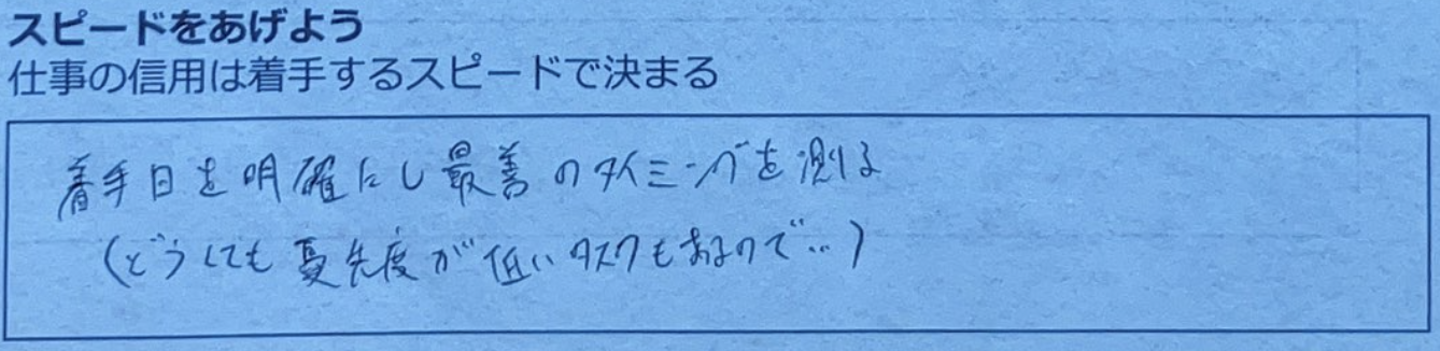 スピードをあげよう
仕事の信用は着手するスピードで決まる
着手日を明確にし最善のタイミングを測る
(どうしても憂先度が低いタスクもあるので…)